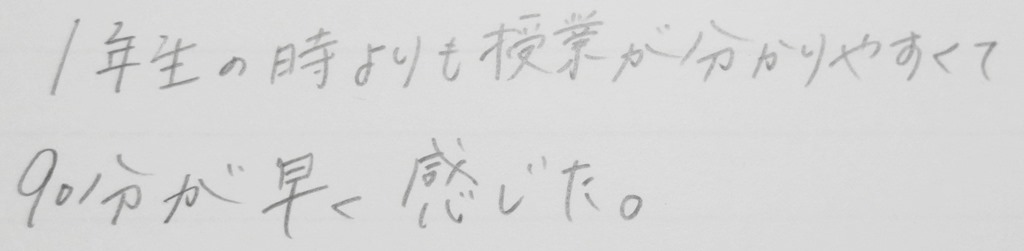 1年生の時よりも授業が分かりやすくて
90分が早く感じた。